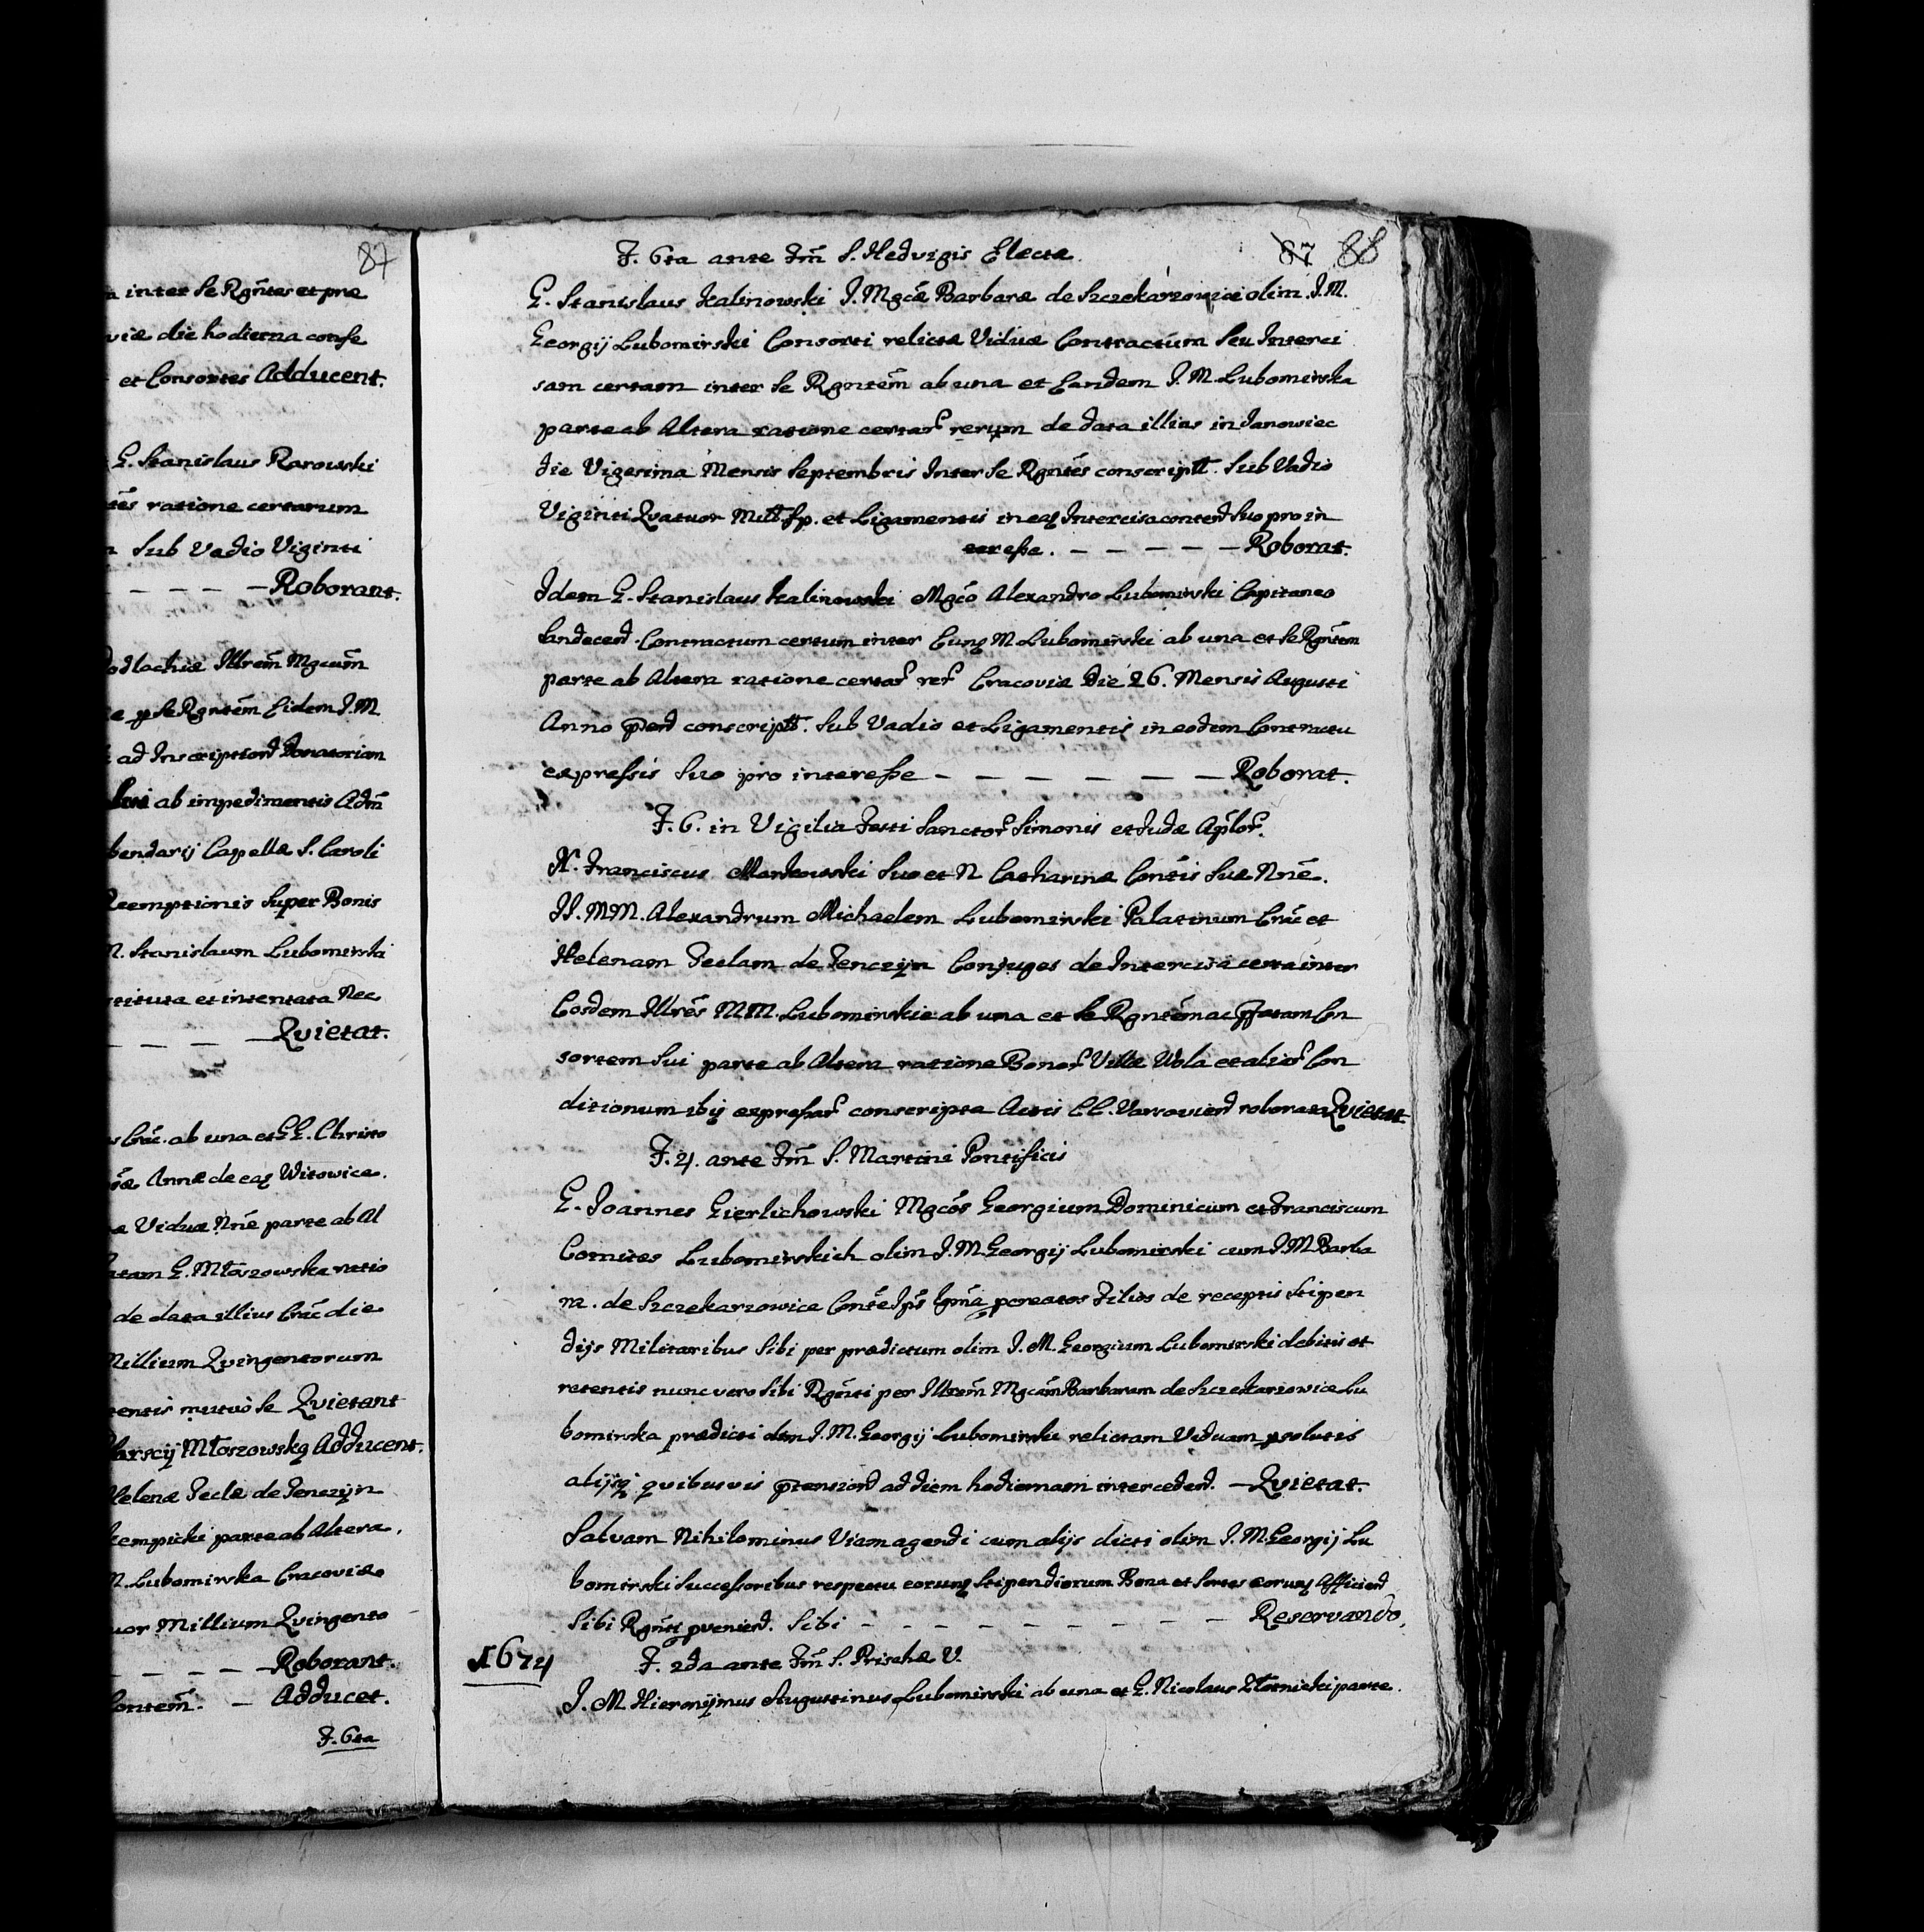 87
inter se Rgñtes et præ
viæ die hodierna confe
et Consortes Adducent.
G. Stanislaus Rarowski
tẽs ratione certarum
Sub Vadio Viginti
– – – – Roborant.
odlachiæ Illrẽm Mgcum
Se Rgntẽm Eidem J. M.
ad Inscriptionẽ Donatoriam
ab impedimentis Adm̃
bendarij Capellæ S. Caroli
Reemptionis Super Bonis
M. Stanislaum Lubomirski
stituta et intentata Nec
– – – – Qvietat.
Crãc. ab una et GG. Christo
Annæ de eaq Witowice.
a Viduæ Nnẽ parte ab Al
atam G. Młoszowska ratio
de data illius Crãc die
Millium Qvingentorum
tentis mutuò se Qvietant
Młoszowskq Adducent.
Helenæ Teclæ de Tenczÿn
kempicki parte ab Altera,
M. Lubomirska Cracoviæ
uor Millium Qvingento
– – – – Roborant.
Contem̃. – Adducet.
F. 6ta
87 88
F. 6ta ante Fm̃ S. Hedvigis Electæ
G. Stanislaus Kalinowski J. Mgcæ Barbaræ de Szczekarzowice olim J. M.
Georgij Lubomirski Consorti relictæ Viduæ Contractum Seu Interci
sam certam inter se Rgntẽm ab una et Eandem J. M. Lubomirska
parte ab Altera ratione certar̃ rerum de data illius in Janowiec
die Vigesima Mensis Septembris Inter se Rgntẽs conscriptt. Sub Vadio
Viginti Qvatuor Mill fp. et Ligamentis in eaq Intercisa contend Suo pro in
teresse. – – – – – – Roborat.
Idem G. Stanislaus Kalinowski Mgcõ Alexandro Lubomirski Capitaneo
Sandecend. Contractum certum inter Eunq M. Lubomirski ab una et se Rgntẽm
parte ab Altera ratione certar̃ rer̃ Cracoviæ Die 26. Mensis Augusti
Anno p̃end conscriptt. Sub Vadio et Ligamentis in eodem Contractu
expressis Suo pro interesse – – – – – – – Roborat.
F. 6. in Vigilia Festi Sanctor̃ Simonis et Judæ Aplor̃.
N. Franciscus Markowski Suo et N. Catharinæ Contis Suæ Nnẽ.
JJ. MM. Alexandrum Michaelem Lubomirski Palatinum Crãc et
Helenam Teclam de Tenczÿn Conjuges de Intercisa certa inter
Eosdem Illrẽs MM. Lubomirskie ab una et se Rgntẽm ac p̃fatam Con
sortem Sui parte ab Altera ratione Bonor̃ Villæ Wola et alior̃ Con
ditionum ibi expressar̃ conscripta Actis CC. Varsoviend roborata Qvietat
F. 4. ante Fm̃ S. Martini Pontificis
G. Joannes Gierlichowski Mgcõs Georgium Dominicum et Franciscum
Comites Lubomirskich olim J. M. Georgij Lubomirski cum J. M. Barba
ra. de Szczekarzowice Contẽ Ips̃ Lgm̃a pcreatos Filios de receptis Stipen
dijs Militaribus Sibi per prædictum olim J. M. Georgium Lubomirski debitis et
retentis nunc vero Sibi Rgñti per Illrem̃ Mgcam̃ Barbaram de Szczekarzowice Lu
bomirska prædicti olim J. M. Georgij Lubomirski relictam Viduam psolutis
alijsq qvibusvis p̃tensiond ad diem hodiernam intercedend. – Qvietat.
Salvam Nihilominus Viam agendi cum alijs dicti olim J. M. Georgij Lu
bomirski Successoribus respectu eorunq Stipendiorum Bona et Sortes eorunq Afficiend
Sibi Rgñti pveniend. Sibi – – – – – – – – Reservando,
1674
F. 2da ante Fm̃ S. Priscæ V.
J. M. Hieronÿmus Augustinus Lubomirski ab una et G. Nicolaus Złotnicki parte.